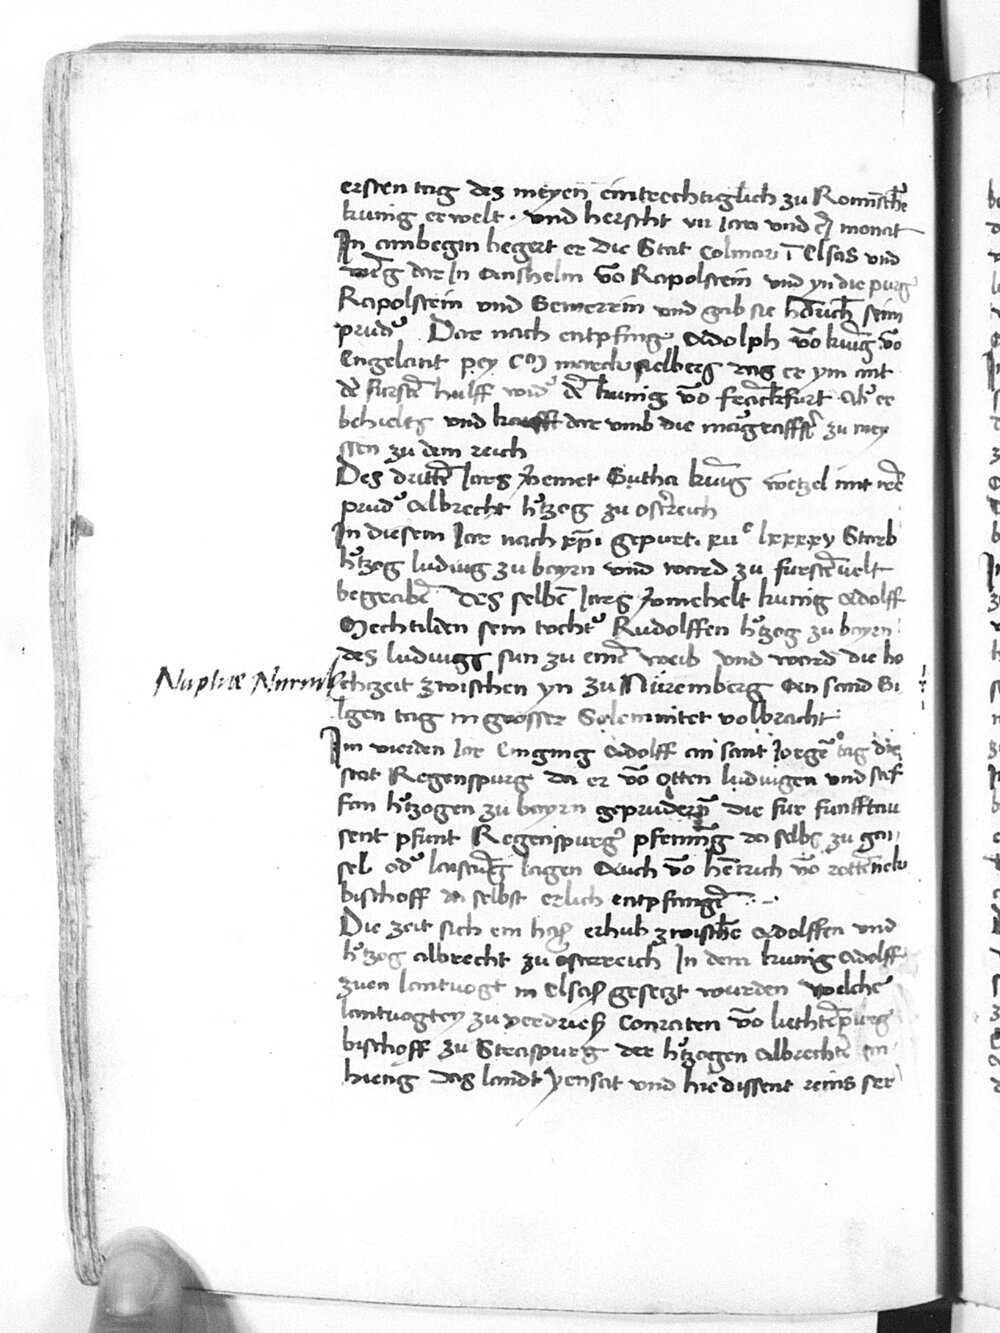 ersten tag des meyen eintrechtiglich zu Romischē
kunig erwelt. vnd herscht vii Jar vnd monat
In anbegin hegert er die Stat Colmar ī Elsas vnd
dar In Anshelm vō Rapolstein vnd yn die purg
Rapolstein vnd Gemerrein vnd gab sie hēirich sein
prudr Dar nach entpfing Adolph vō kunig vō
Engelant pey CM marck silberg das er ym mit
dr furstē hulff widr dē kunig vō frāckfurt Abr er
behielts vnd kaufft dar vmb die margraffst zu mey
ssen zu dem reich
Des drittē Jars Nemet Gutha kunig wetzel mit irē
prudr Albrecht hrtzog zu ostrreich
In diesem Jar nach xp̄i gepurt. xiic lxxxxv Starb
hrtzog ludwig zu bayrn vnd ward zu furstēuelt
begrabē Des selbē Jars vmehelt kunig Adolff
Mechtilden sein tochtr Rudolffen hrtzog zu bayrn
des ludwigs sun zu einē weib vnd ward die ho
Nuptiae Nurmb
chzeit zwischen yn zu Nüremberg An sand Gi
lgen tag in grosser Solemnitet volbracht
Im vierden Jar Einging Adolff an sant Jorgē tag die
stat Regenspurg da er vō Otten ludwigen vnd stef
fan hrtzogen zu bayrn geprudern die fur funfftau
sent pfunt Regenspurgr pfennig da selbs zu gai
sel odr laistūg lagen Auch vō hēinrich vō rottēnek
bischoff da selbst erlich entpfangē
Die zeit sich ein has erhub zwischē Adolffen vnd
hrtzog albrecht zu osterreich In dem kunig Adolff
zuen lantuogt in Elsas gesetzt wurden welche
lantuogtey zu verdries Conraten vō liechtēpurg
bischoff zu Straspurg der hrtzogen albrechtē an
hieng das landt vensat vnd hie dissent reins ser